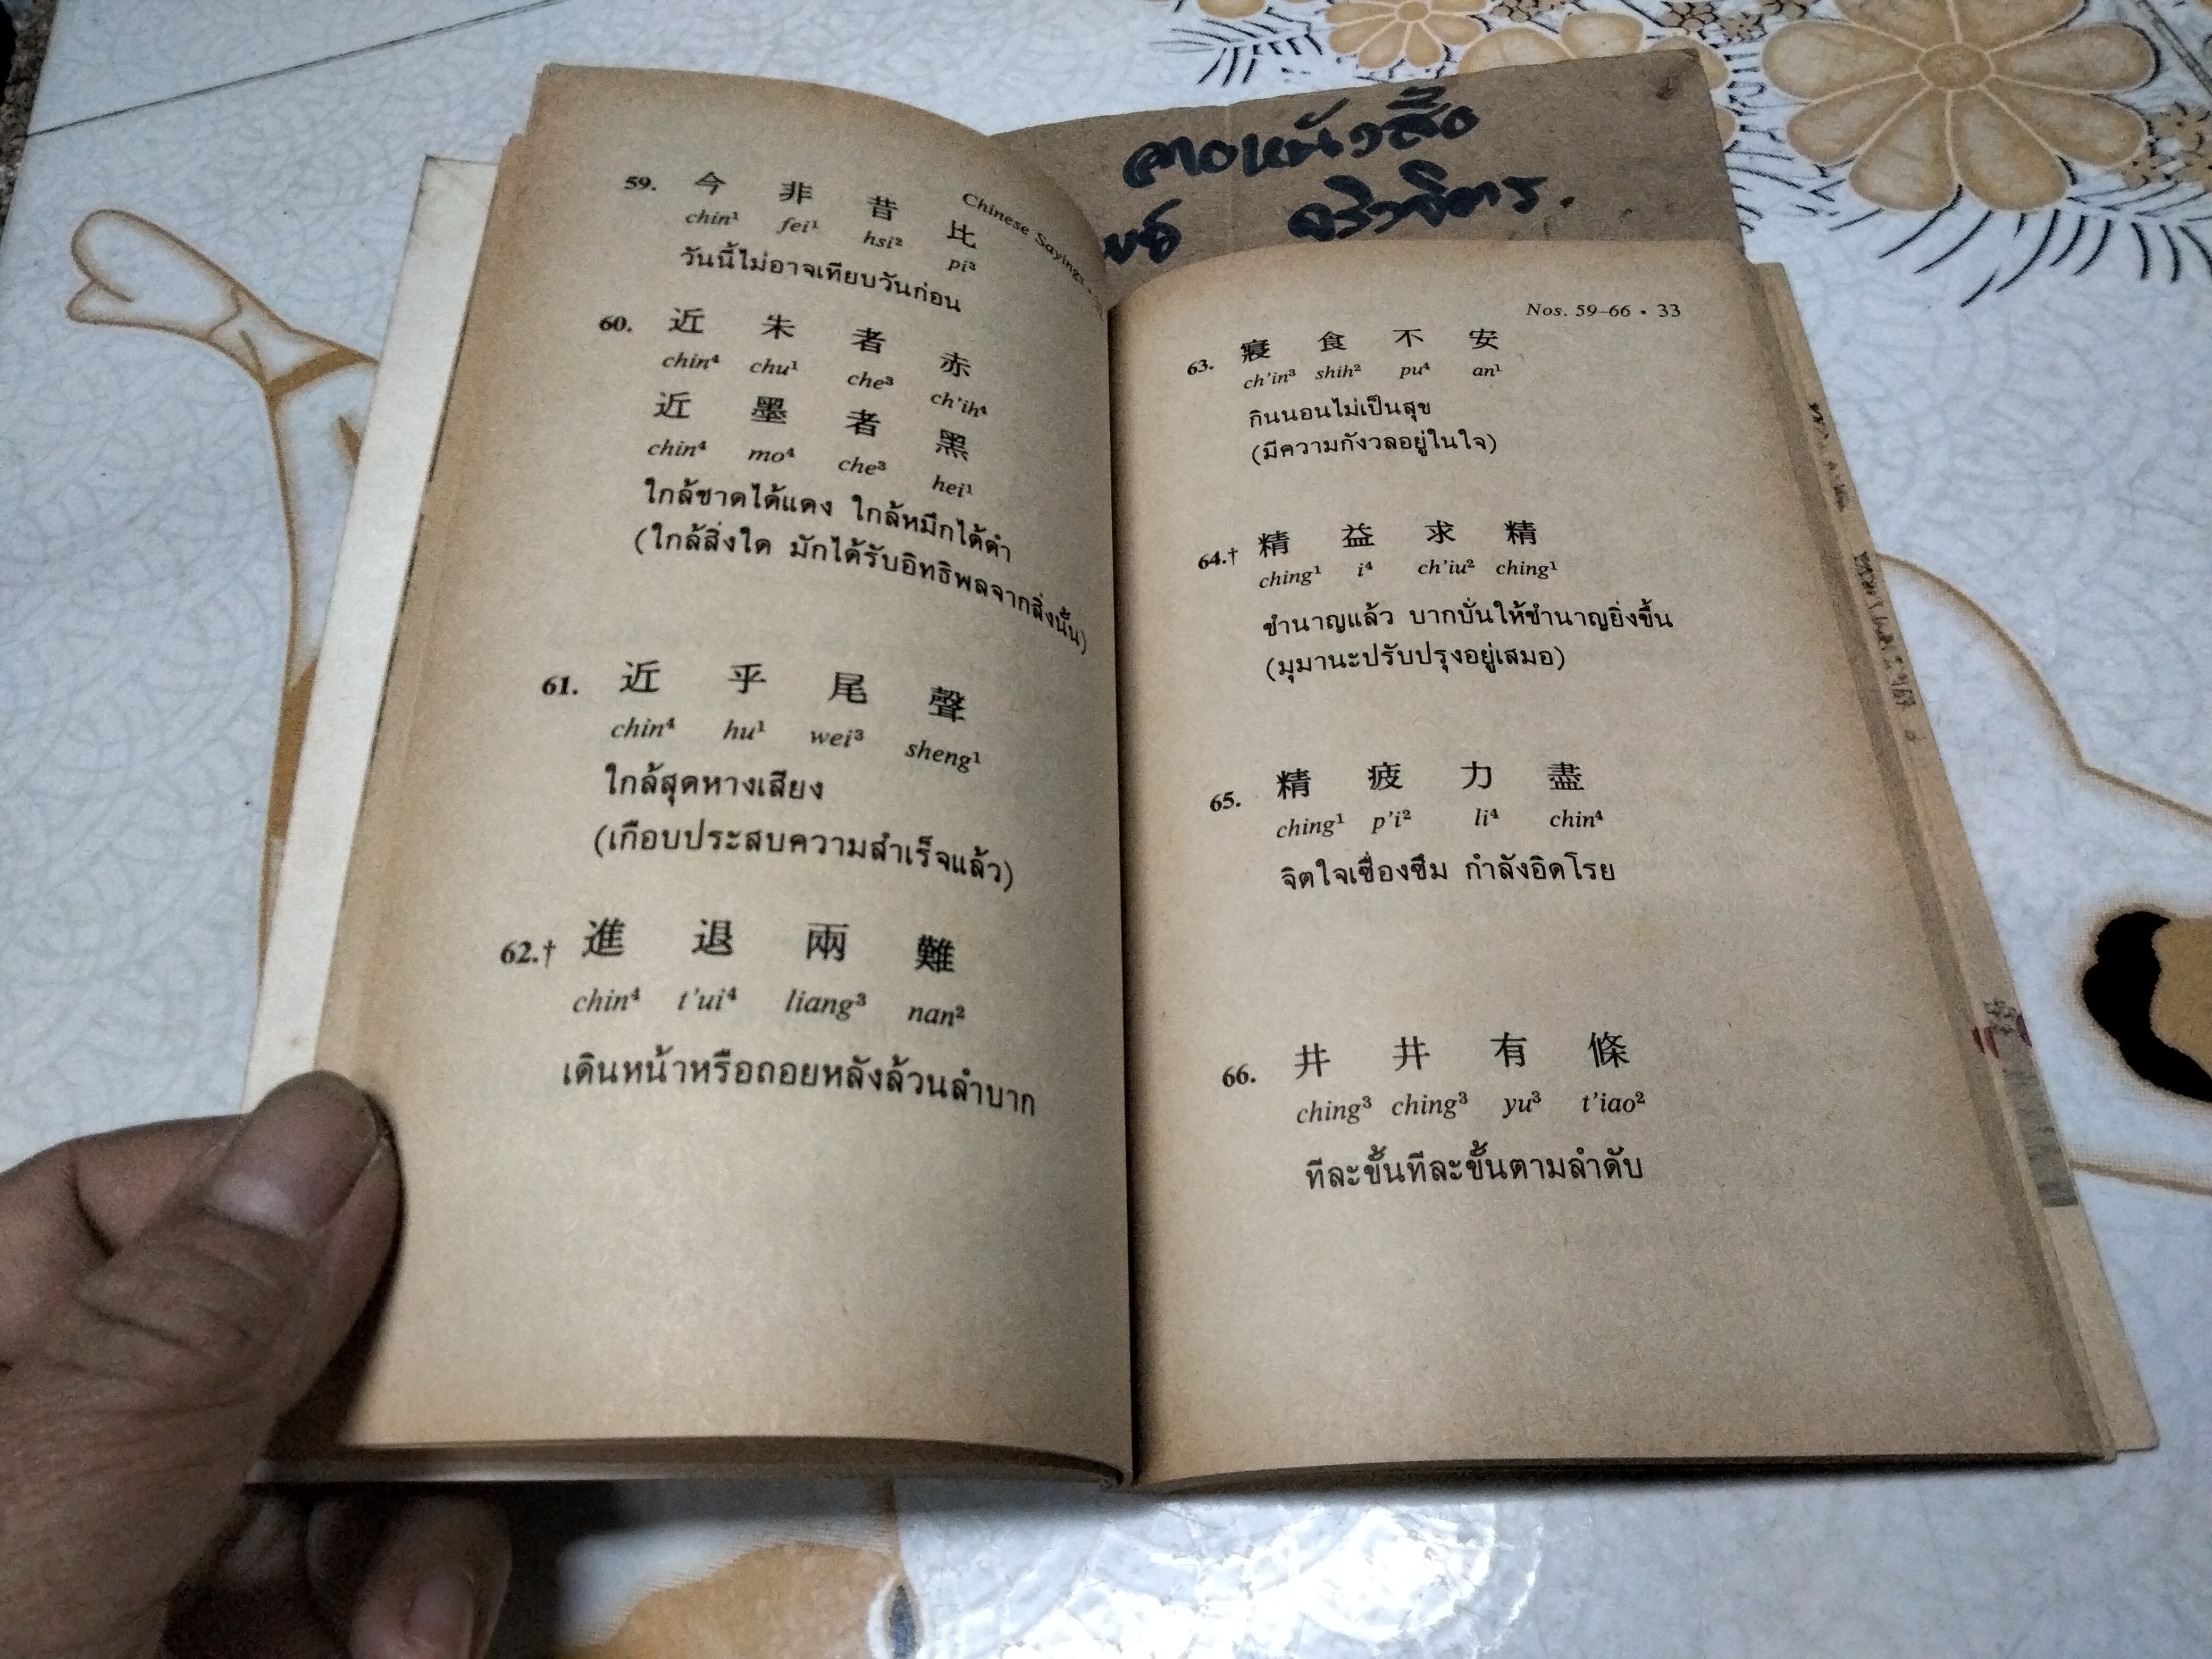 Chinese Sayings •
59. 今 非 昔 比
chin¹ fei¹ hsi² pi³
วันนี้ไม่อาจเทียบวันก่อน
60. 近 朱 者 赤
chin⁴ chu¹ che³ ch'ih⁴
近 墨 者 黑
chin⁴ mo⁴ che³ hei¹
ใกล้ชาดได้แดง ใกล้หมึกได้ดำ
(ใกล้สิ่งใด มักได้รับอิทธิพลจากสิ่งนั้น)
61. 近 乎 尾 聲
chin⁴ hu¹ wei³ sheng¹
ใกล้สุดหางเสียง
(เกือบประสบความสำเร็จแล้ว)
62.† 進 退 兩 難
chin⁴ t'ui⁴ liang³ nan²
เดินหน้าหรือถอยหลังล้วนลำบาก
Nos. 59–66 • 33
63. 寢 食 不 安
ch'in³ shih² pu⁴ an¹
กินนอนไม่เป็นสุข
(มีความกังวลอยู่ในใจ)
64.† 精 益 求 精
ching¹ i⁴ ch'iu² ching¹
ชำนาญแล้ว บากบั่นให้ชำนาญยิ่งขึ้น
(มุมานะปรับปรุงอยู่เสมอ)
65. 精 疲 力 盡
ching¹ p'i² li⁴ chin⁴
จิตใจเชื่องซึม กำลังอิดโรย
66. 井 井 有 條
ching³ ching³ yu³ t'iao²
ทีละขั้นทีละขั้นตามลำดับ